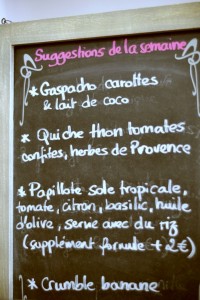 Suggestions de la semaine
* Gaspacho carottes
& lait de coco
* Quiche thon tomates
confites, herbes de Provence
* Papillote sole tropicale,
tomate, citron, basilic, huile
d'olive, servie avec du riz
(supplément formule + 2€)
* Crumble banane